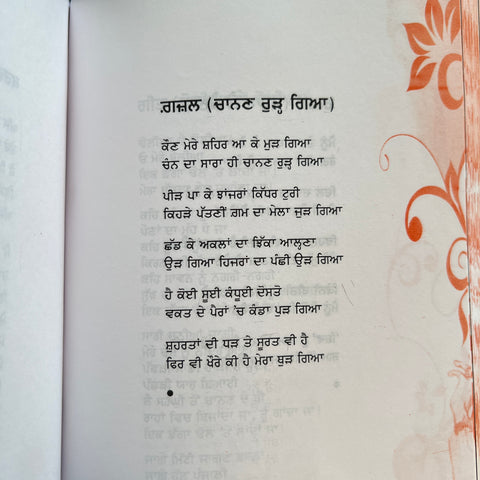 ਗ਼ਜ਼ਲ (ਚਾਨਣ ਰੁੜ੍ਹ ਗਿਆ)
ਕੌਣ ਮੇਰੇ ਸ਼ਹਿਰ ਆ ਕੇ ਮੁੜ ਗਿਆ
ਚੰਨ ਦਾ ਸਾਰਾ ਹੀ ਚਾਨਣ ਰੁੜ੍ਹ ਗਿਆ
ਪੀੜ ਪਾ ਕੇ ਝਾਂਜਰਾਂ ਕਿੱਧਰ ਟੁਰੀ
ਕਿਹੜੇ ਪੱਤਣੀਂ ਗ਼ਮ ਦਾ ਮੇਲਾ ਜੁੜ ਗਿਆ
ਛੱਡ ਕੇ ਅਕਲਾਂ ਦਾ ਝਿੱਕਾ ਆਲ੍ਹਣਾ
ਉੜ ਗਿਆ ਹਿਜਰਾਂ ਦਾ ਪੰਛੀ ਉੜ ਗਿਆ
ਹੈ ਕੋਈ ਸੂਈ ਕੰਧੂਈ ਦੋਸਤੋ
ਵਕਤ ਦੇ ਪੈਰਾਂ 'ਚ ਕੰਡਾ ਪੁੜ ਗਿਆ
ਸ਼ੁਹਰਤਾਂ ਦੀ ਧੜ ਤੇ ਸੂਰਤ ਵੀ ਹੈ
ਫਿਰ ਵੀ ਖੌਰੇ ਕੀ ਹੈ ਮੇਰਾ ਥੁੜ ਗਿਆ